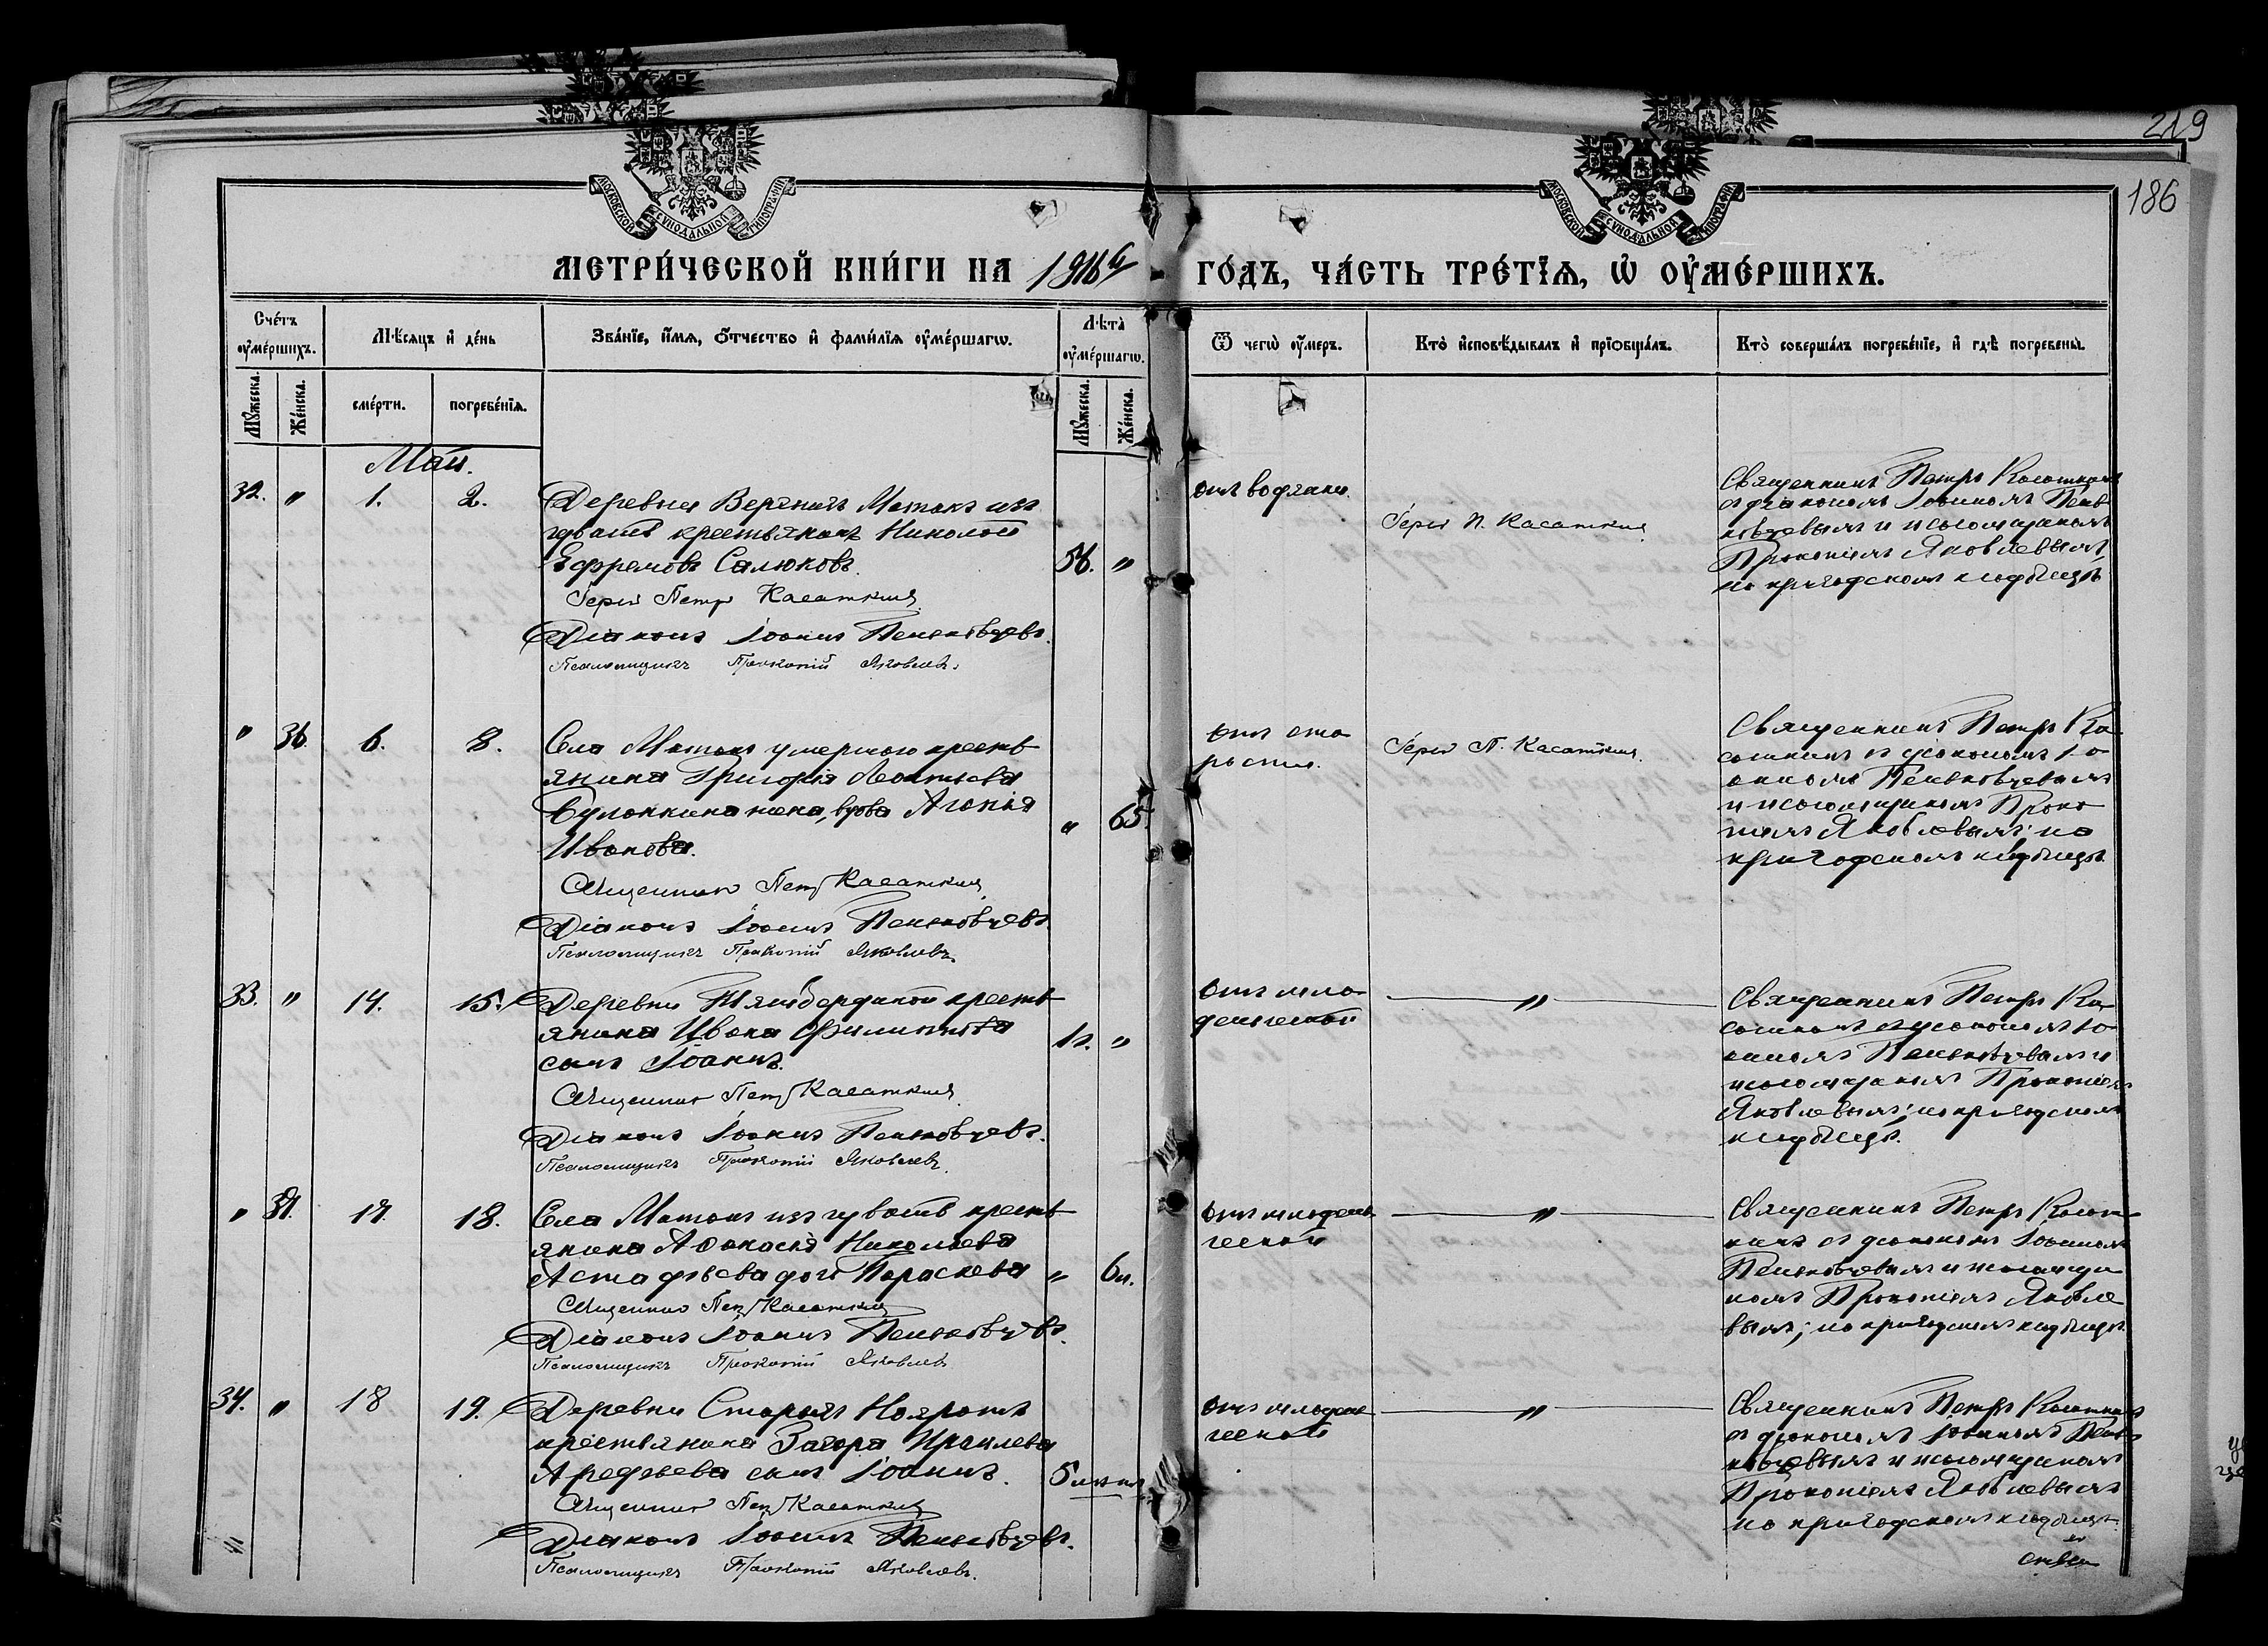 219
186
МОСКОВСКОЙ СѴНОДАЛЬНОЙ ТИПОГРАФІИ
МОСКОВСКОЙ СѴНОДАЛЬНОЙ ТИПОГРАФІИ
МЕТРИ́ЧЕСКОЙ КНИ́ГИ НА 1916 го́дъ, ча́сть тре́тїѧ, ѡ҆ ᲂу҆ме́ршихъ.
Сче́тъ ᲂу҆ме́ршихъ.
Мꙋ́жеска.
Же́нска.
Мѣ́сѧцъ и҆ де́нь
сме́рти.
погребе́нїѧ.
Зва́нїе, и҆́мѧ, ѻ҆́тчество и҆ фами́лїѧ ᲂу҆ме́ршагѡ.
Лѣта̀ ᲂу҆ме́ршагѡ.
Мꙋ́жеска.
Же́нска.
Ѿ чегѡ̀ ᲂу҆́меръ.
Кто̀ и҆сповѣ́дывалъ и҆ прїѡбща́лъ.
Кто̀ соверша́лъ погребе́нїе, и҆ гдѣ̀ погребены̀.
Май.
32. " 1. 2. Деревни Верхнихъ Матакъ изъ
чувашъ крестьянинъ Николай
Ефремовъ Салюковъ. 56. "
Іерей Петръ Касаткинъ
Діаконъ Іоаннъ Пеньковцевъ.
Псаломщикъ Прокопій Яковлевъ.
отъ водянки.
Іерей П. Касаткинъ
Священникъ Петръ Касаткинъ
съ діакономъ Іоанномъ Пень-
ковцевымъ и псаломщикомъ
Прокопіемъ Яковлевымъ,
на приходскомъ кладбищѣ
" 36. 6. 8. Села Матакъ умершаго кресть
янина Григорія Леонтьева
Булонкина жена, вдова Агапія
Иванова. " 65.
Священникъ Петръ Касаткинъ
Діаконъ Іоаннъ Пеньковцевъ.
Псаломщикъ Прокопій Яковлевъ.
отъ ста
рости.
Іерей П. Касаткинъ.
Священникъ Петръ Ка
саткинъ съ діакономъ Іо
анномъ Пеньковцевымъ
и псаломщикомъ Проко
піемъ Яковлевымъ; на
приходскомъ кладбищѣ
33. " 14. 15. Деревни крестъ
янина Ивана Филиппова
сынъ Іоаннъ. 1г. "
Священникъ Петръ Касаткинъ
Діаконъ Іоаннъ Пеньковцевъ.
Псаломщикъ Прокопій Яковлевъ.
отъ мла
денческой
"
Священникъ Петръ Ка
саткинъ съ діакономъ Іо
анномъ Пеньковцевымъ и
псаломщикомъ Прокопіемъ
Яковлевымъ; на приходскомъ
кладбищѣ.
" 37. 17. 18. Села Матакъ изъ чувашъ кресть
янина Аѳанасія Николаева
Астафьева дочь Параскева " 6м.
Священникъ Петръ Касаткинъ
Діаконъ Іоаннъ Пеньковцевъ.
Псаломщикъ Прокопій Яковлевъ
отъ младен
ческой
"
Священникъ Петръ Касат
кинъ съ діакономъ Іоанномъ
Пеньковцевымъ и псаломщи
комъ Прокопіемъ Яковле
вымъ; на приходскомъ кладбищѣ
34. " 18 19. Деревни Старыхъ
крестьянина
сынъ Іоаннъ.
Священникъ Петръ Касаткинъ
Діаконъ Іоаннъ Пеньковцевъ.
Псаломщикъ Прокопій Яковлевъ.
отъ младен
ческой
"
Священникъ Петръ Касаткинъ
съ діакономъ Іоанномъ Пень
ковцевымъ и псаломщикомъ
Прокопіемъ Яковлевымъ
на приходскомъ кладбищѣ